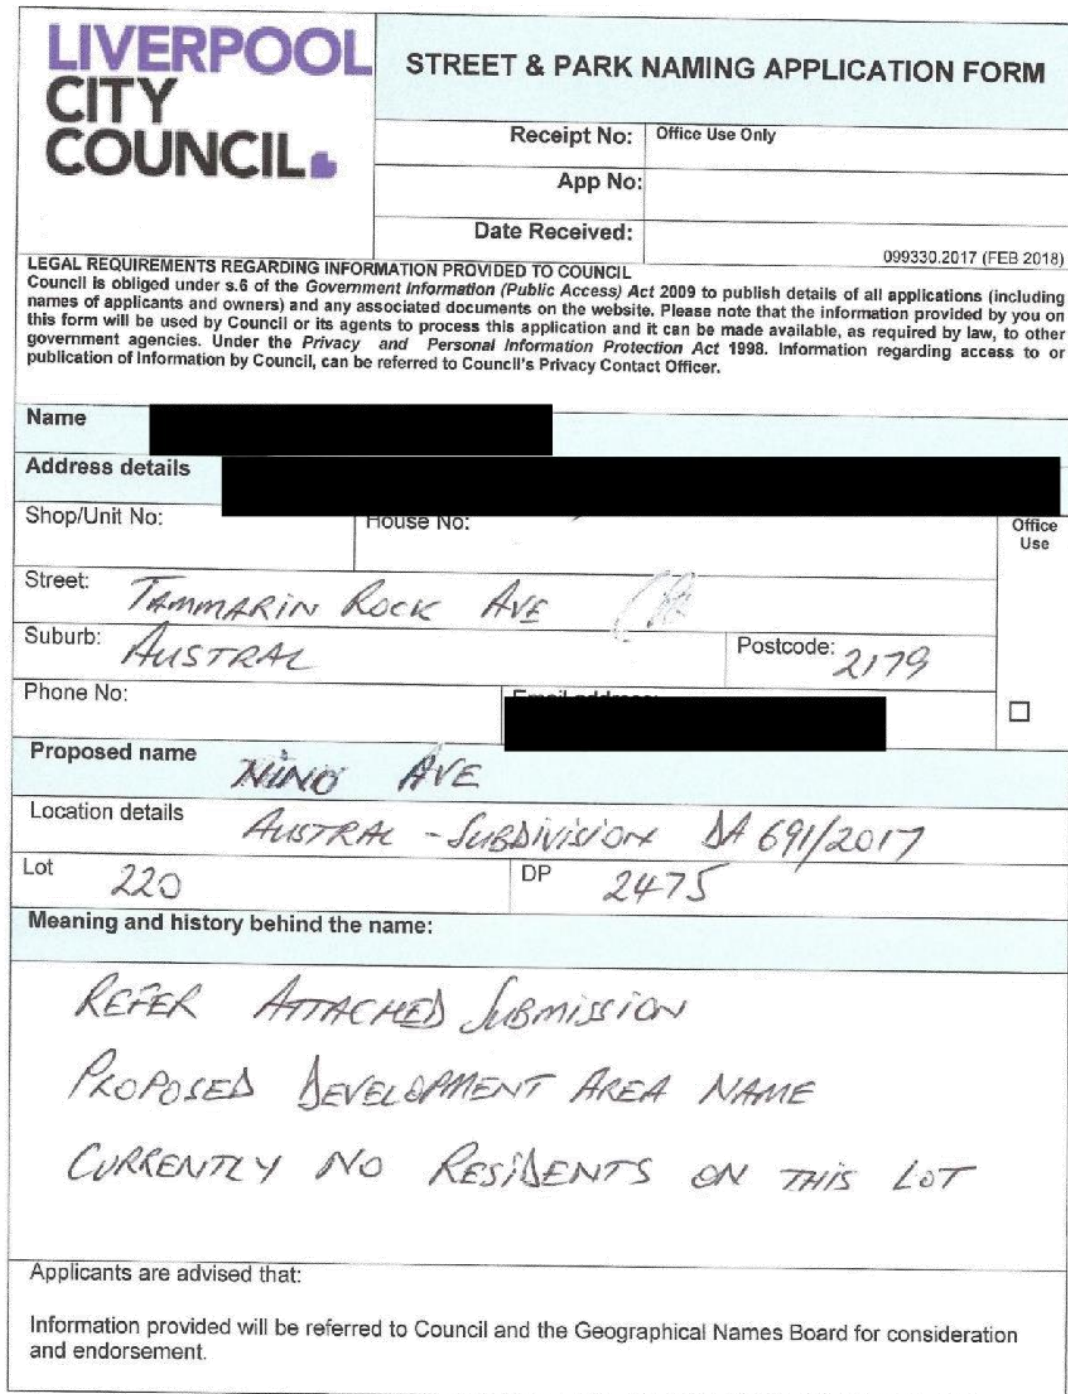 LIVERPOOL
CITY
COUNCIL
STREET & PARK NAMING APPLICATION FORM
Receipt No: Office Use Only
App No:
Date Received:
099330.2017 (FEB 2018)
LEGAL REQUIREMENTS REGARDING INFORMATION PROVIDED TO COUNCIL
Council is obliged under s.6 of the Government Information (Public Access) Act 2009 to publish details of all applications (including
names of applicants and owners) and any associated documents on the website. Please note that the information provided by you on
this form will be used by Council or its agents to process this application and it can be made available, as required by law, to other
government agencies. Under the Privacy and Personal Information Protection Act 1998. Information regarding access to or
publication of Information by Council, can be referred to Council's Privacy Contact Officer.
Name
Address details
Shop/Unit No: House No: Office
Use
Street: TAMMARIN ROCK AVE
Suburb: AUSTRAL Postcode: 2179
Phone No: Email address:
Proposed name NINO AVE
Location details AUSTRAL - SUBDIVISION DA 691/2017
Lot 220 DP 2475
Meaning and history behind the name:
REFER ATTACHED SUBMISSION
PROPOSED DEVELOPMENT AREA NAME
CURRENTLY NO RESIDENTS ON THIS LOT
Applicants are advised that:
Information provided will be referred to Council and the Geographical Names Board for consideration
and endorsement.